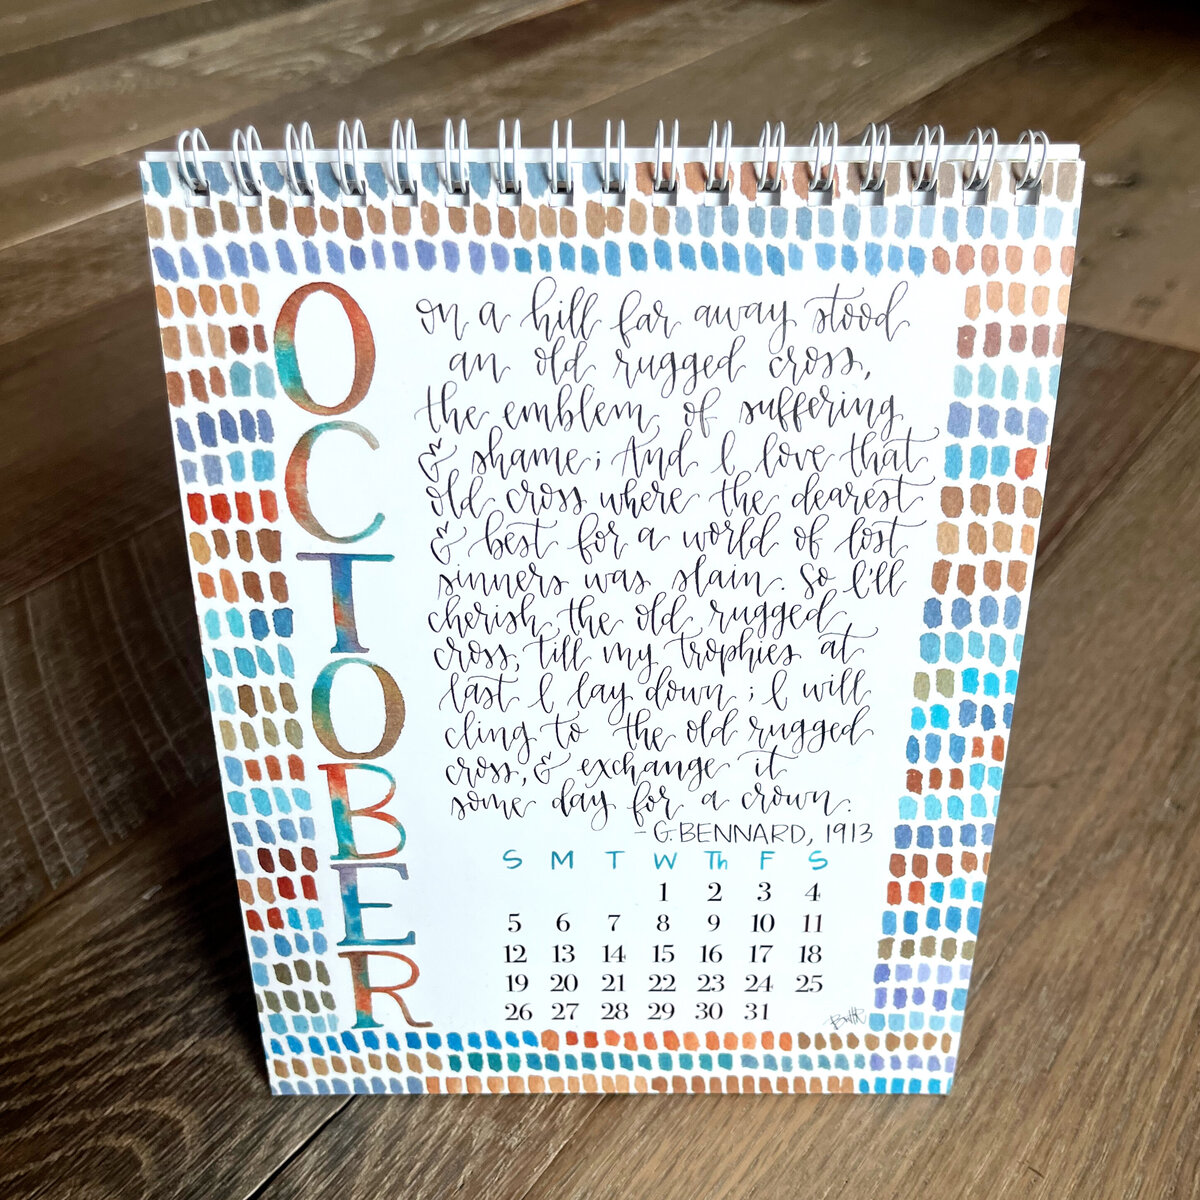 OCTOBER
on a hill far away stood
an old rugged cross,
the emblem of suffering
& shame; And I love that
old cross where the dearest
& best for a world of lost
sinners was slain. So I'll
cherish the old rugged
cross, till my trophies at
last I lay down; I will
cling to the old rugged
cross, & exchange it
some day for a crown.
- G. BENNARD, 1913
S M T W Th F S
1 2 3 4
5 6 7 8 9 10 11
12 13 14 15 16 17 18
19 20 21 22 23 24 25
26 27 28 29 30 31